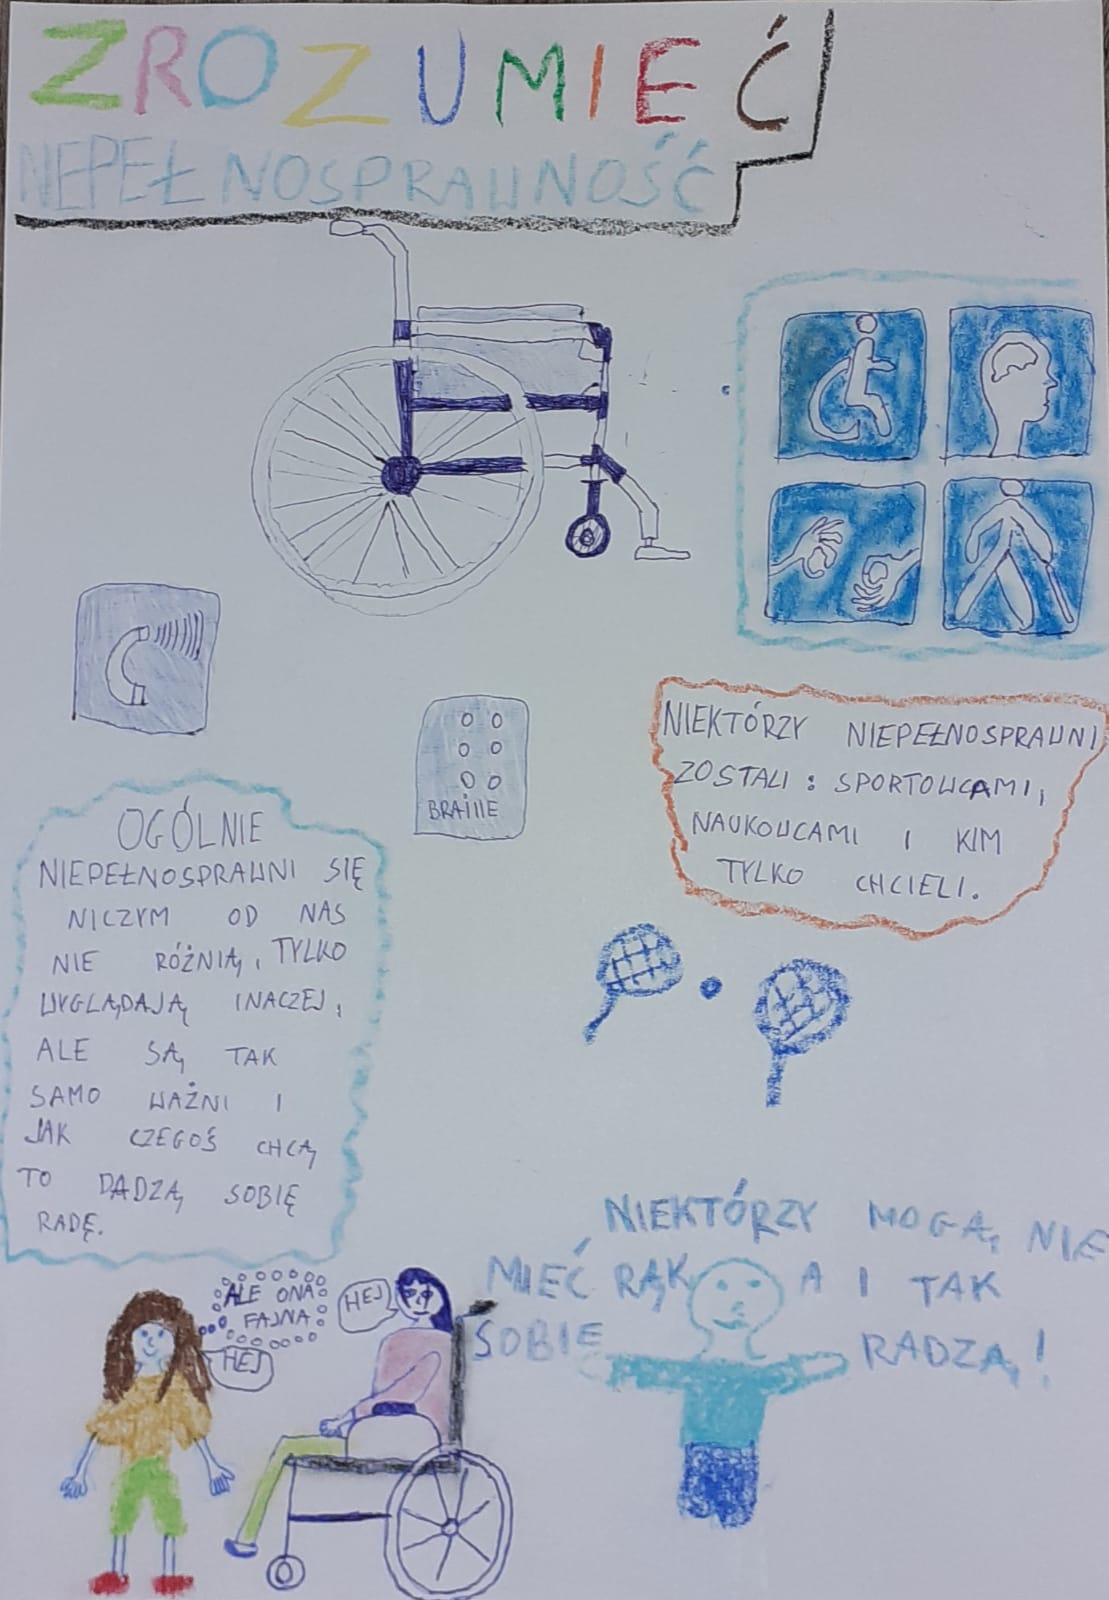 ZROZUMIEĆ
NEPEŁNOSPRAWNOŚĆ
BRAILLE
NIEKTÓRZY NIEPEŁNOSPRAWNI
ZOSTALI: SPORTOWCAMI,
NAUKOWCAMI I KIM
TYLKO CHCIELI.
OGÓLNIE
NIEPEŁNOSPRAWNI SIĘ
NICZYM OD NAS
NIE RÓŻNIĄ, TYLKO
WYGLĄDAJĄ INACZEJ,
ALE SĄ TAK
SAMO WAŻNI I
JAK CZEGOŚ CHCĄ
TO DADZĄ SOBIĘ
RADĘ.
NIEKTÓRZY MOGĄ NIE
MIEĆ RĄK A I TAK
SOBIE RADZĄ!
ALE ONA
FAJNA
HEJ
HEJ